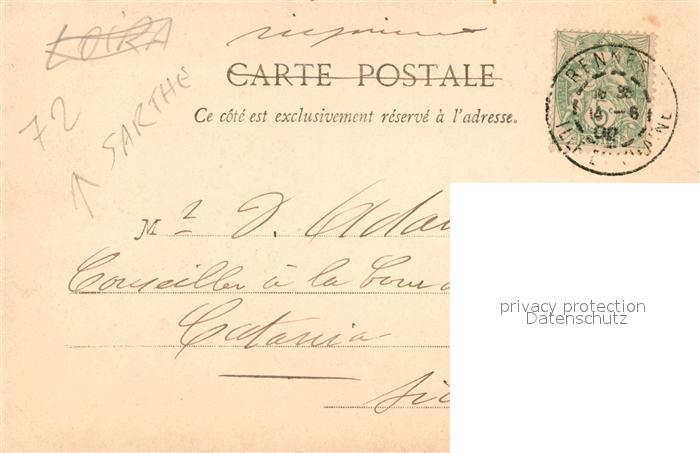 LOIRA
72
SARTHE
CARTE POSTALE
Ce côté est exclusivement réservé à l'adresse.
RENNE
ILLE ET VILAINE
5
Mr J. Adam
Conseiller à la Cour
Catania
Sic
privacy protection
Datenschutz